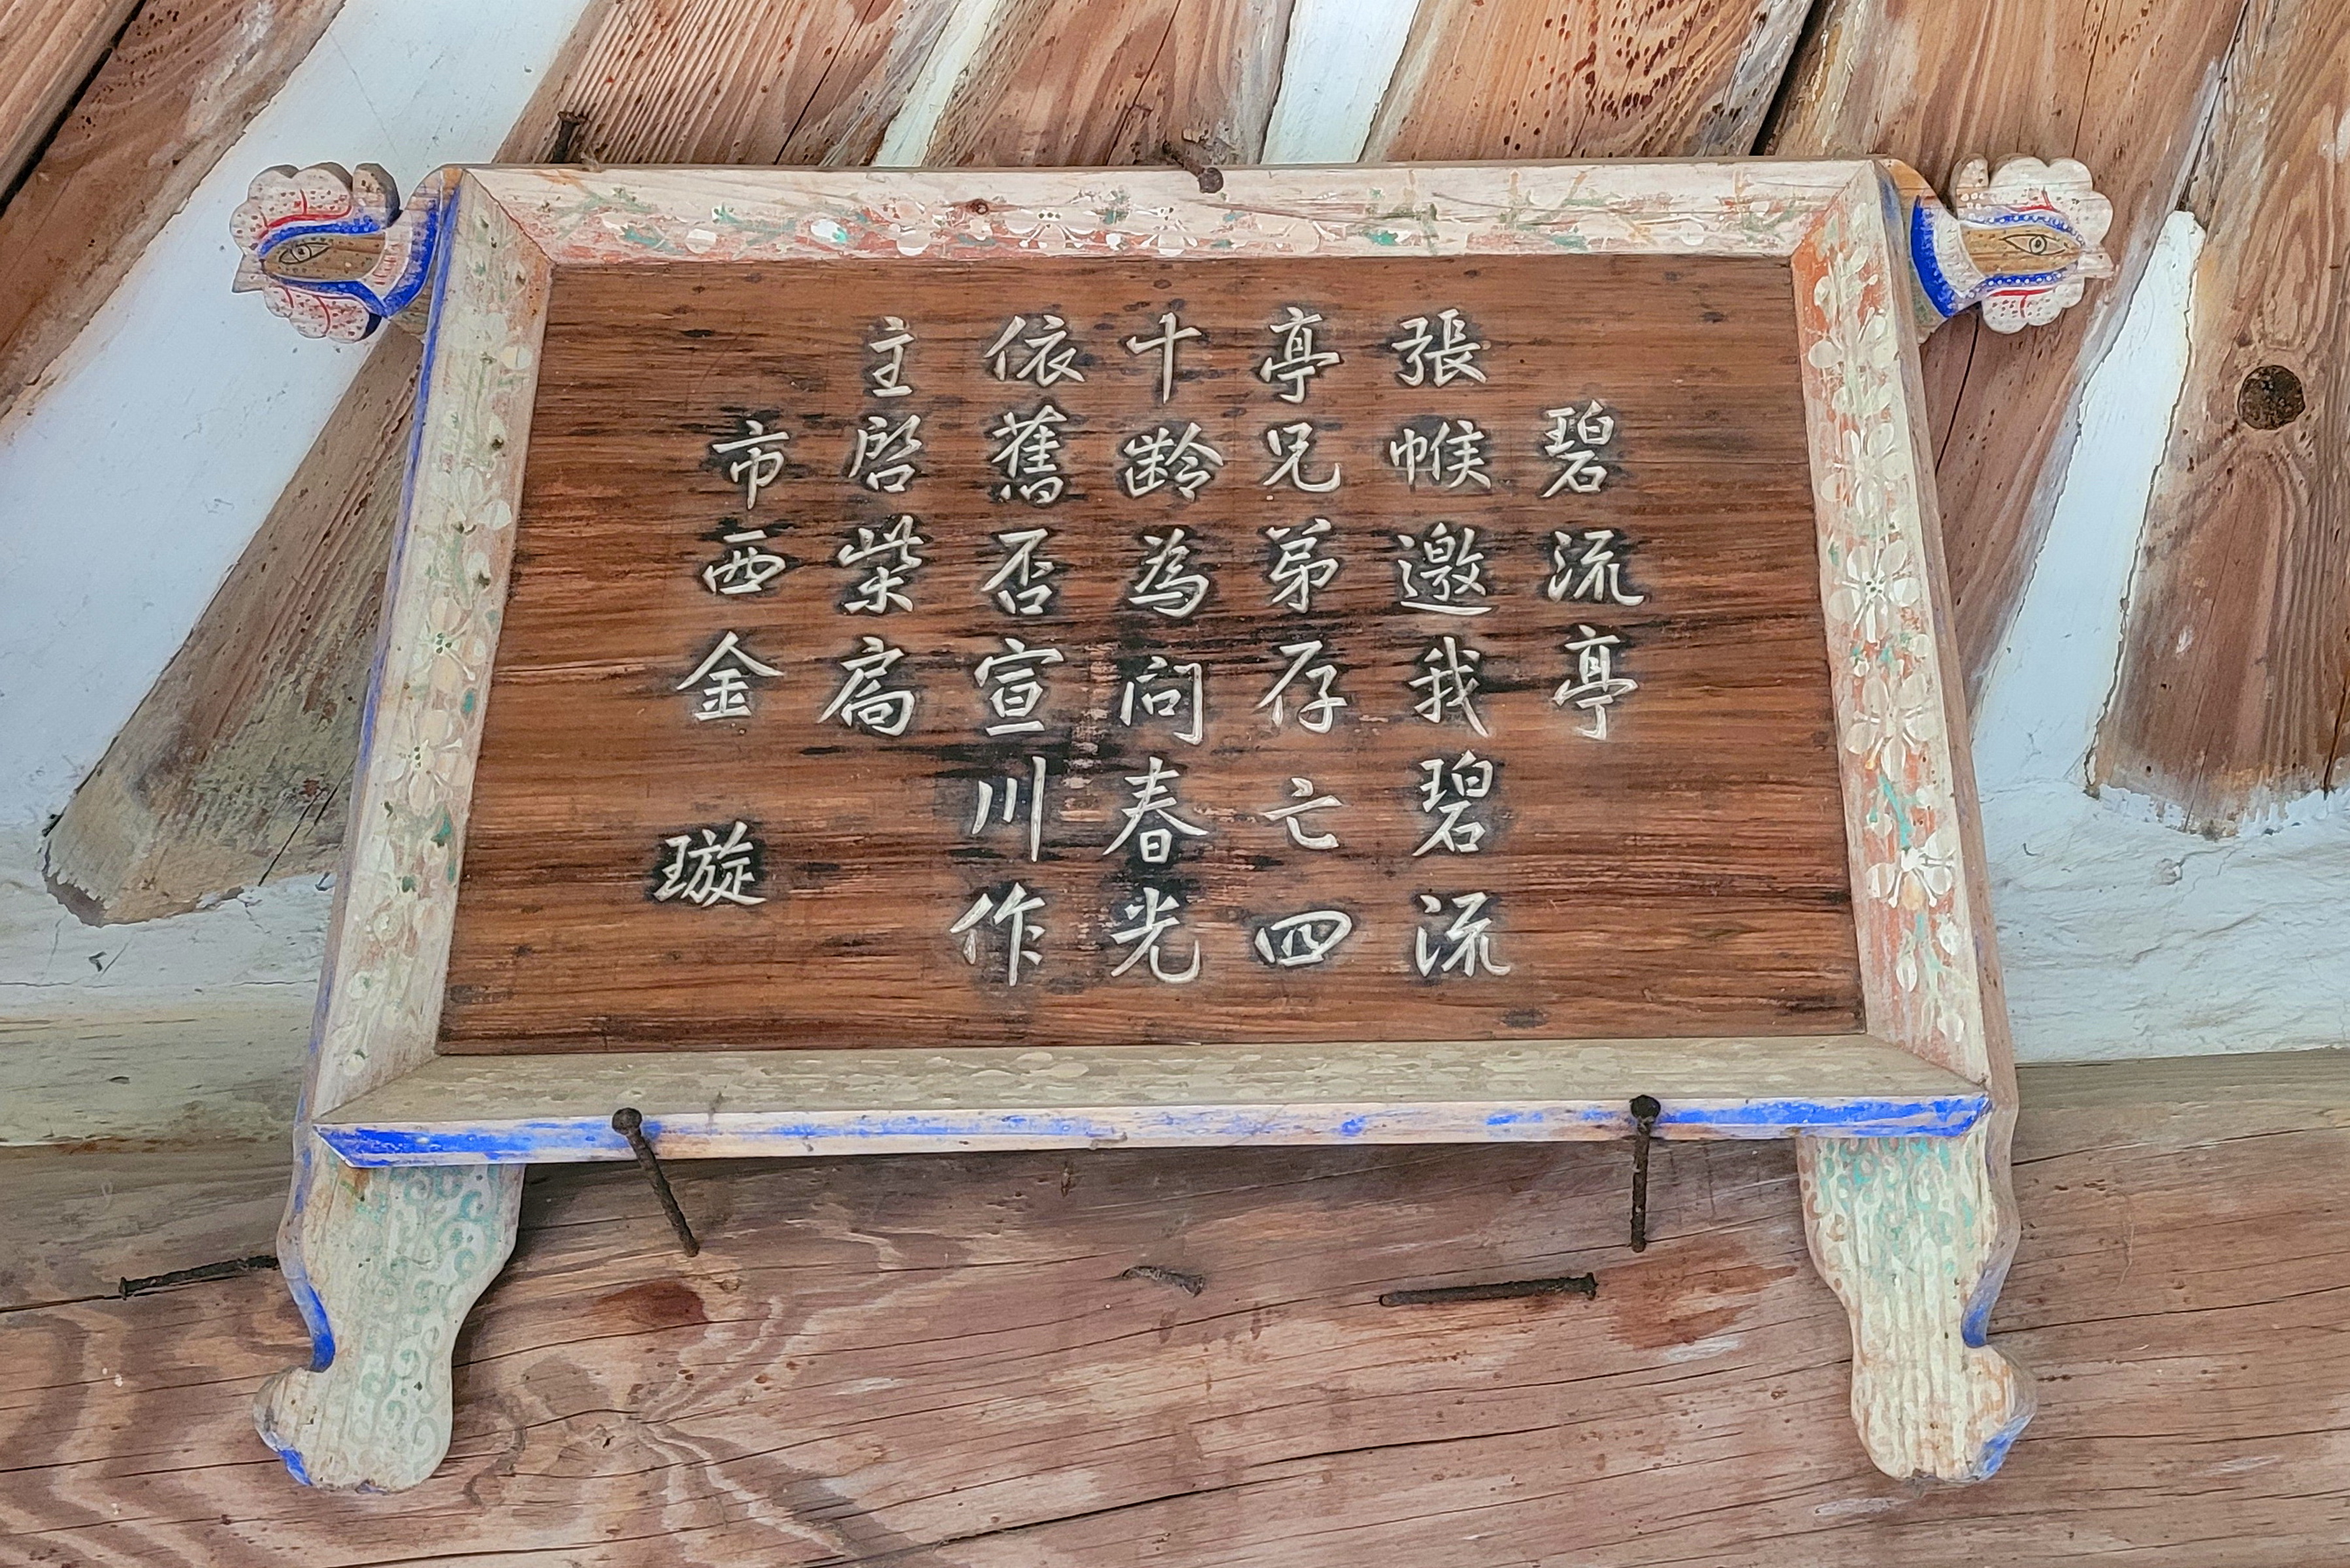 碧流亭
張帿邀我碧流
亭兄弟存亡四
十齡為問春光
依舊否宣川作
主啓柴扃
市西金 璇